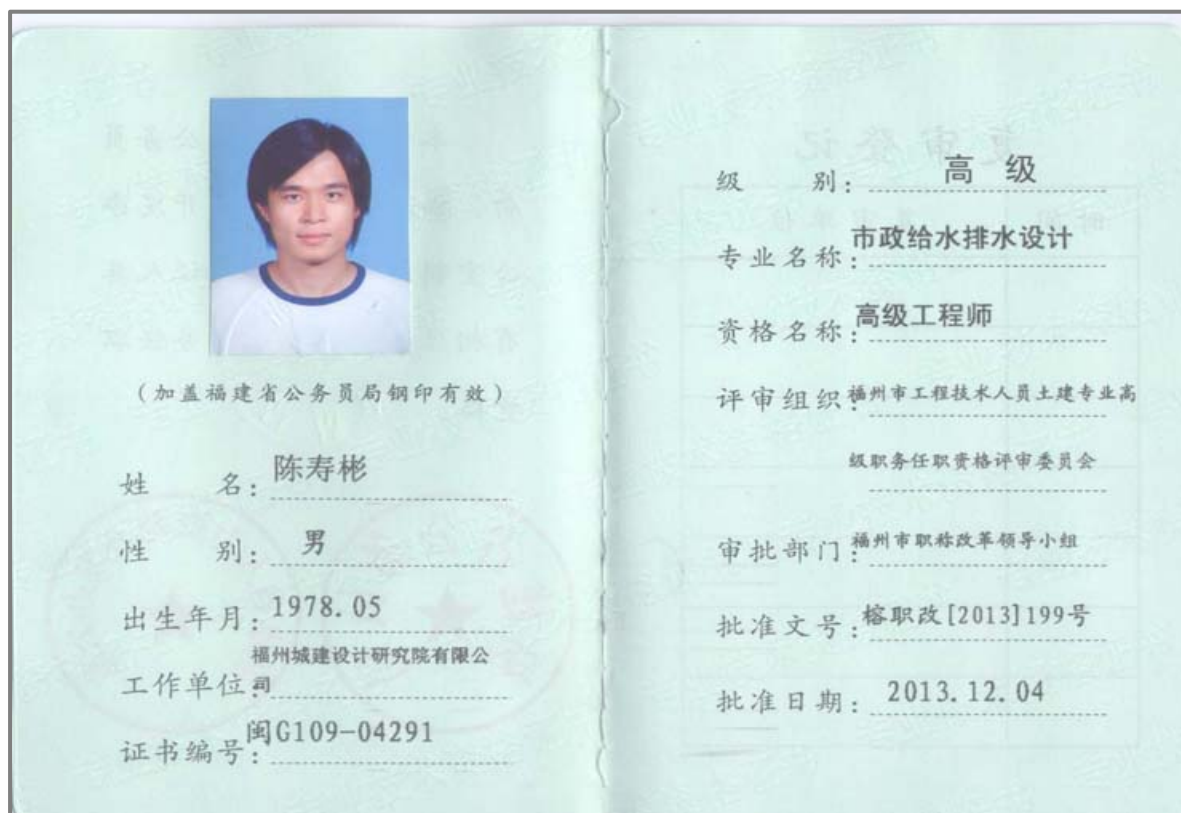 (加盖福建省公务员局钢印有效)
姓 名: 陈寿彬
性 别: 男
出生年月: 1978.05
福州城建设计研究院有限公
工作单位: 司
证书编号: 闽G109-04291
级 别: 高 级
专业名称: 市政给水排水设计
资格名称: 高级工程师
评审组织: 福州市工程技术人员土建专业高
级职务任职资格评审委员会
审批部门: 福州市职称改革领导小组
批准文号: 榕职改[2013]199号
批准日期: 2013.12.04
复审登记